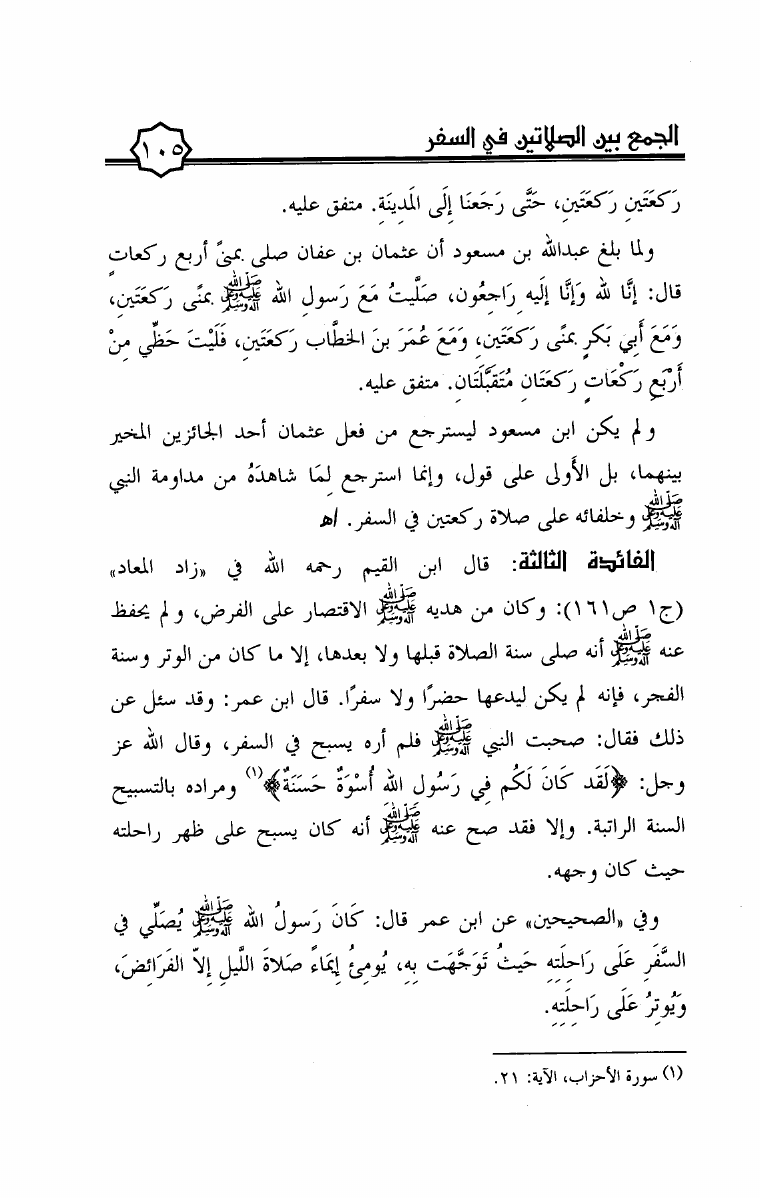 الجمع بين الصلاتين في السفر
١٠٥
رَكعَتَينِ رَكعَتَينِ، حَتَّى رَجَعنَا إِلَى المَدِينَةِ. متفق عليه.
ولما بلغ عبدالله بن مسعود أن عثمان بن عفان صلى بمنىً أربع ركعاتٍ
قال: إنَّا لله وَإنَّا إلَيهِ رَاجِعُون، صَلَّيتُ مَعَ رَسولِ الله ﷺ بمنًى رَكعَتَينِ،
وَمَعَ أَبِي بَكرٍ بمنًى رَكعَتَينِ، وَمَعَ عُمَرَ بنَ الخَطَّاب رَكعَتَينِ، فَلَيْتَ حَظِّي مِنْ
أَرْبَعِ رَكْعَاتٍ رَكعَتَان مُتَقبَّلَتَان. متفق عليه.
ولم يكن ابن مسعود ليسترجع من فعل عثمان أحد الجائزين المخير
بينهما، بل الأَولى على قول، وإنما استرجع لِمَا شاهدَهُ من مداومة النبي
ﷺ وخلفائه على صلاة ركعتين في السفر. اﻫ
الفائدة الثالثة: قال ابن القيم رحمه الله في «زاد المعاد»
(ج١ ص١٦١): وكان من هديه ﷺ الاقتصار على الفرض، ولم يحفظ
عنه ﷺ أنه صلى سنة الصلاة قبلها ولا بعدها، إلا ما كان من الوتر وسنة
الفجر، فإنه لم يكن ليدعها حضرًا ولا سفرًا. قال ابن عمر: وقد سئل عن
ذلك فقال: صحبت النبي ﷺ فلم أره يسبح في السفر، وقال الله عز
وجل: ﴿لَقَد كَانَ لَكُم فِي رَسُولِ الله أُسْوَةٌ حَسَنَةٌ﴾(١) ومراده بالتسبيح
السنة الراتبة. وإلا فقد صح عنه ﷺ أنه كان يسبح على ظهر راحلته
حيث كان وجهه.
وفي «الصحيحين» عن ابن عمر قال: كَانَ رَسولُ الله ﷺ يُصَلِّي في
السَّفَرِ عَلَى رَاحِلَتِهِ حَيثُ تَوَجَّهَت بِهِ، يُومِئُ إيمَاءً صَلاَةَ اللَّيلِ إلاّ الفَرَائِضَ،
وَيُوتِرُ عَلَى رَاحِلَتِهِ.
(١) سورة الأحزاب، الآية: ٢١.